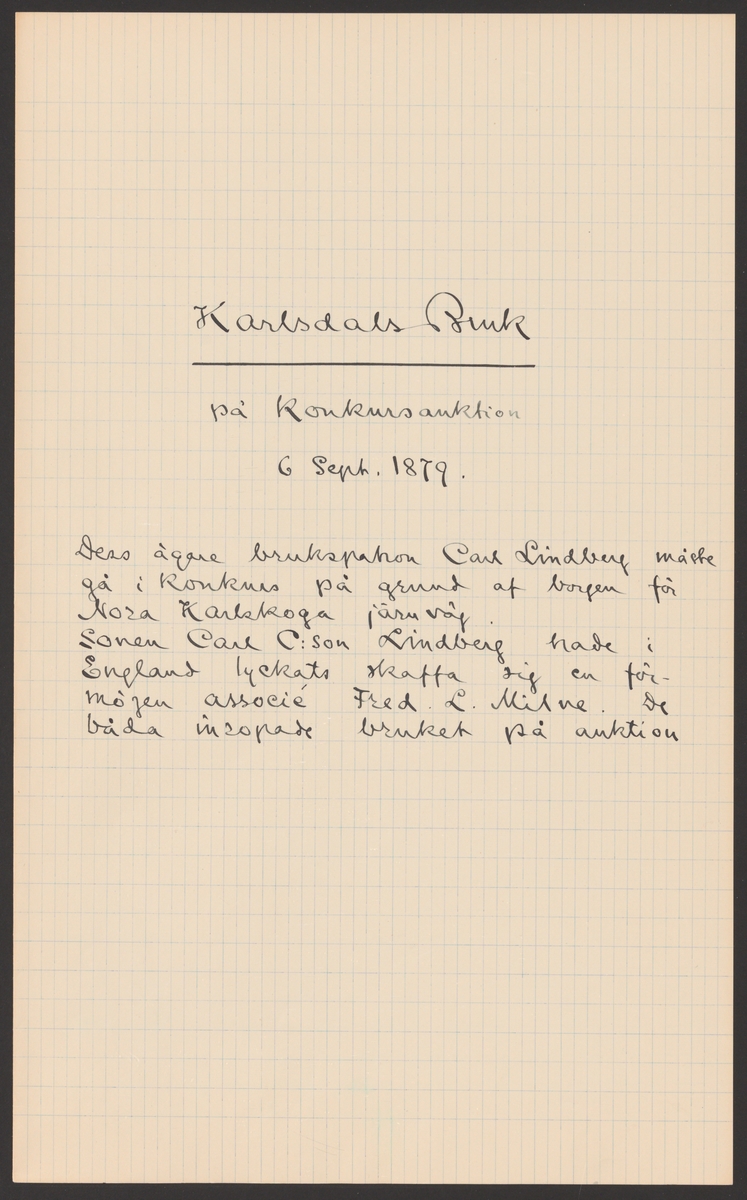 Karlsdals Bruk
på Konkursauktion
6 Sept. 1879.
Dess ägare brukspatron Carl Lindberg måste
gå i konkurs på grund af borgen för
Nora Karlskoga järnväg.
Sonen Carl C:son Lindberg hade i
England lyckats skaffa sig en för-
mögen associé Fred. L. Milne. De
båda inropade bruket på auktion